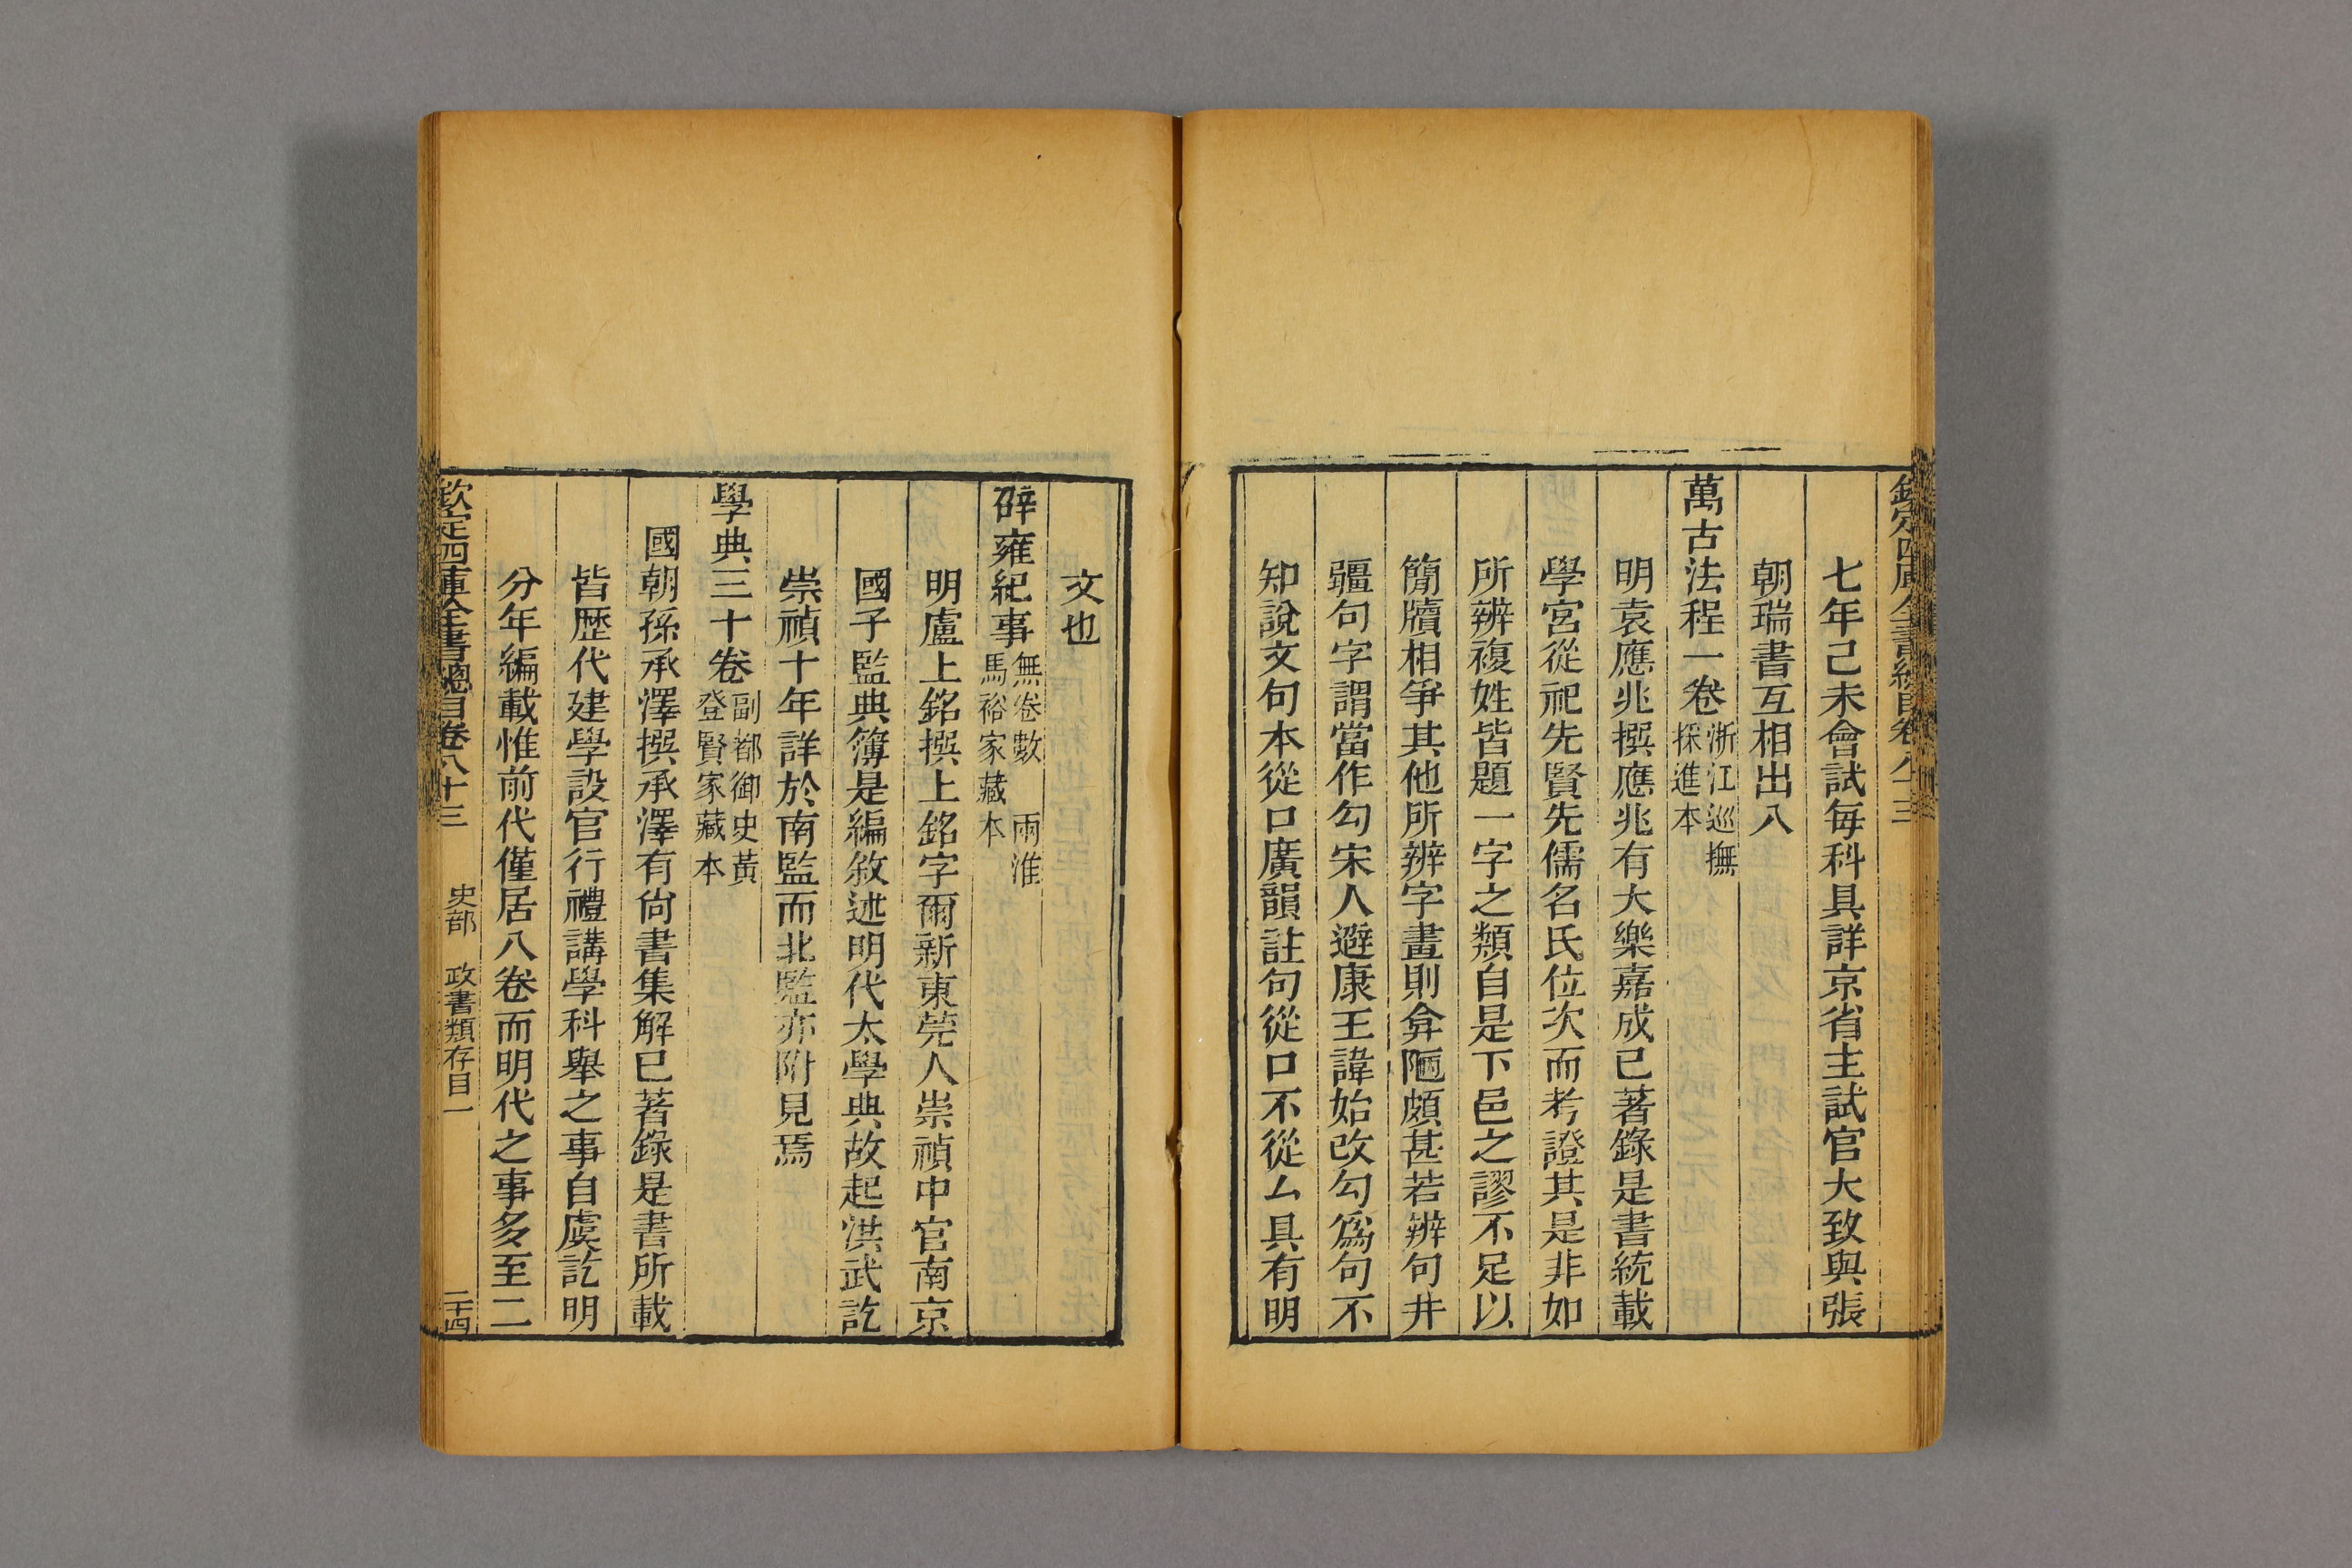 欽定四庫全書總目卷八十三
七年己未會試每科具詳京省主試官大致與張
朝瑞書互相出入
萬古法程一卷浙江巡撫採進本
明袁應兆撰應兆有大樂嘉成已著錄是書統載
學宮從祀先賢先儒名氏位次而考證其是非如
所辨複姓皆題一字之類自是下邑之謬不足以
簡牘相爭其他所辨字畫則弇陋頗甚若辨句井
疆句字謂當作勾宋人避康王諱始改勾爲句不
知說文句本從口廣韻註句從口不從厶具有明
文也
辟雍紀事無卷數 兩淮馬裕家藏本
明盧上銘撰上銘字爾新東莞人崇禎中官南京
國子監典簿是編敘述明代太學典故起洪武訖
崇禎十年詳於南監而北監亦附見焉
學典三十卷副都御史黃登賢家藏本
國朝孫承澤撰承澤有尙書集解已著錄是書所載
皆歷代建學設官行禮講學科舉之事自虞訖明
分年編載惟前代僅居八卷而明代之事多至二
欽定四庫全書總目卷八十三 史部 政書類存目一 二十四